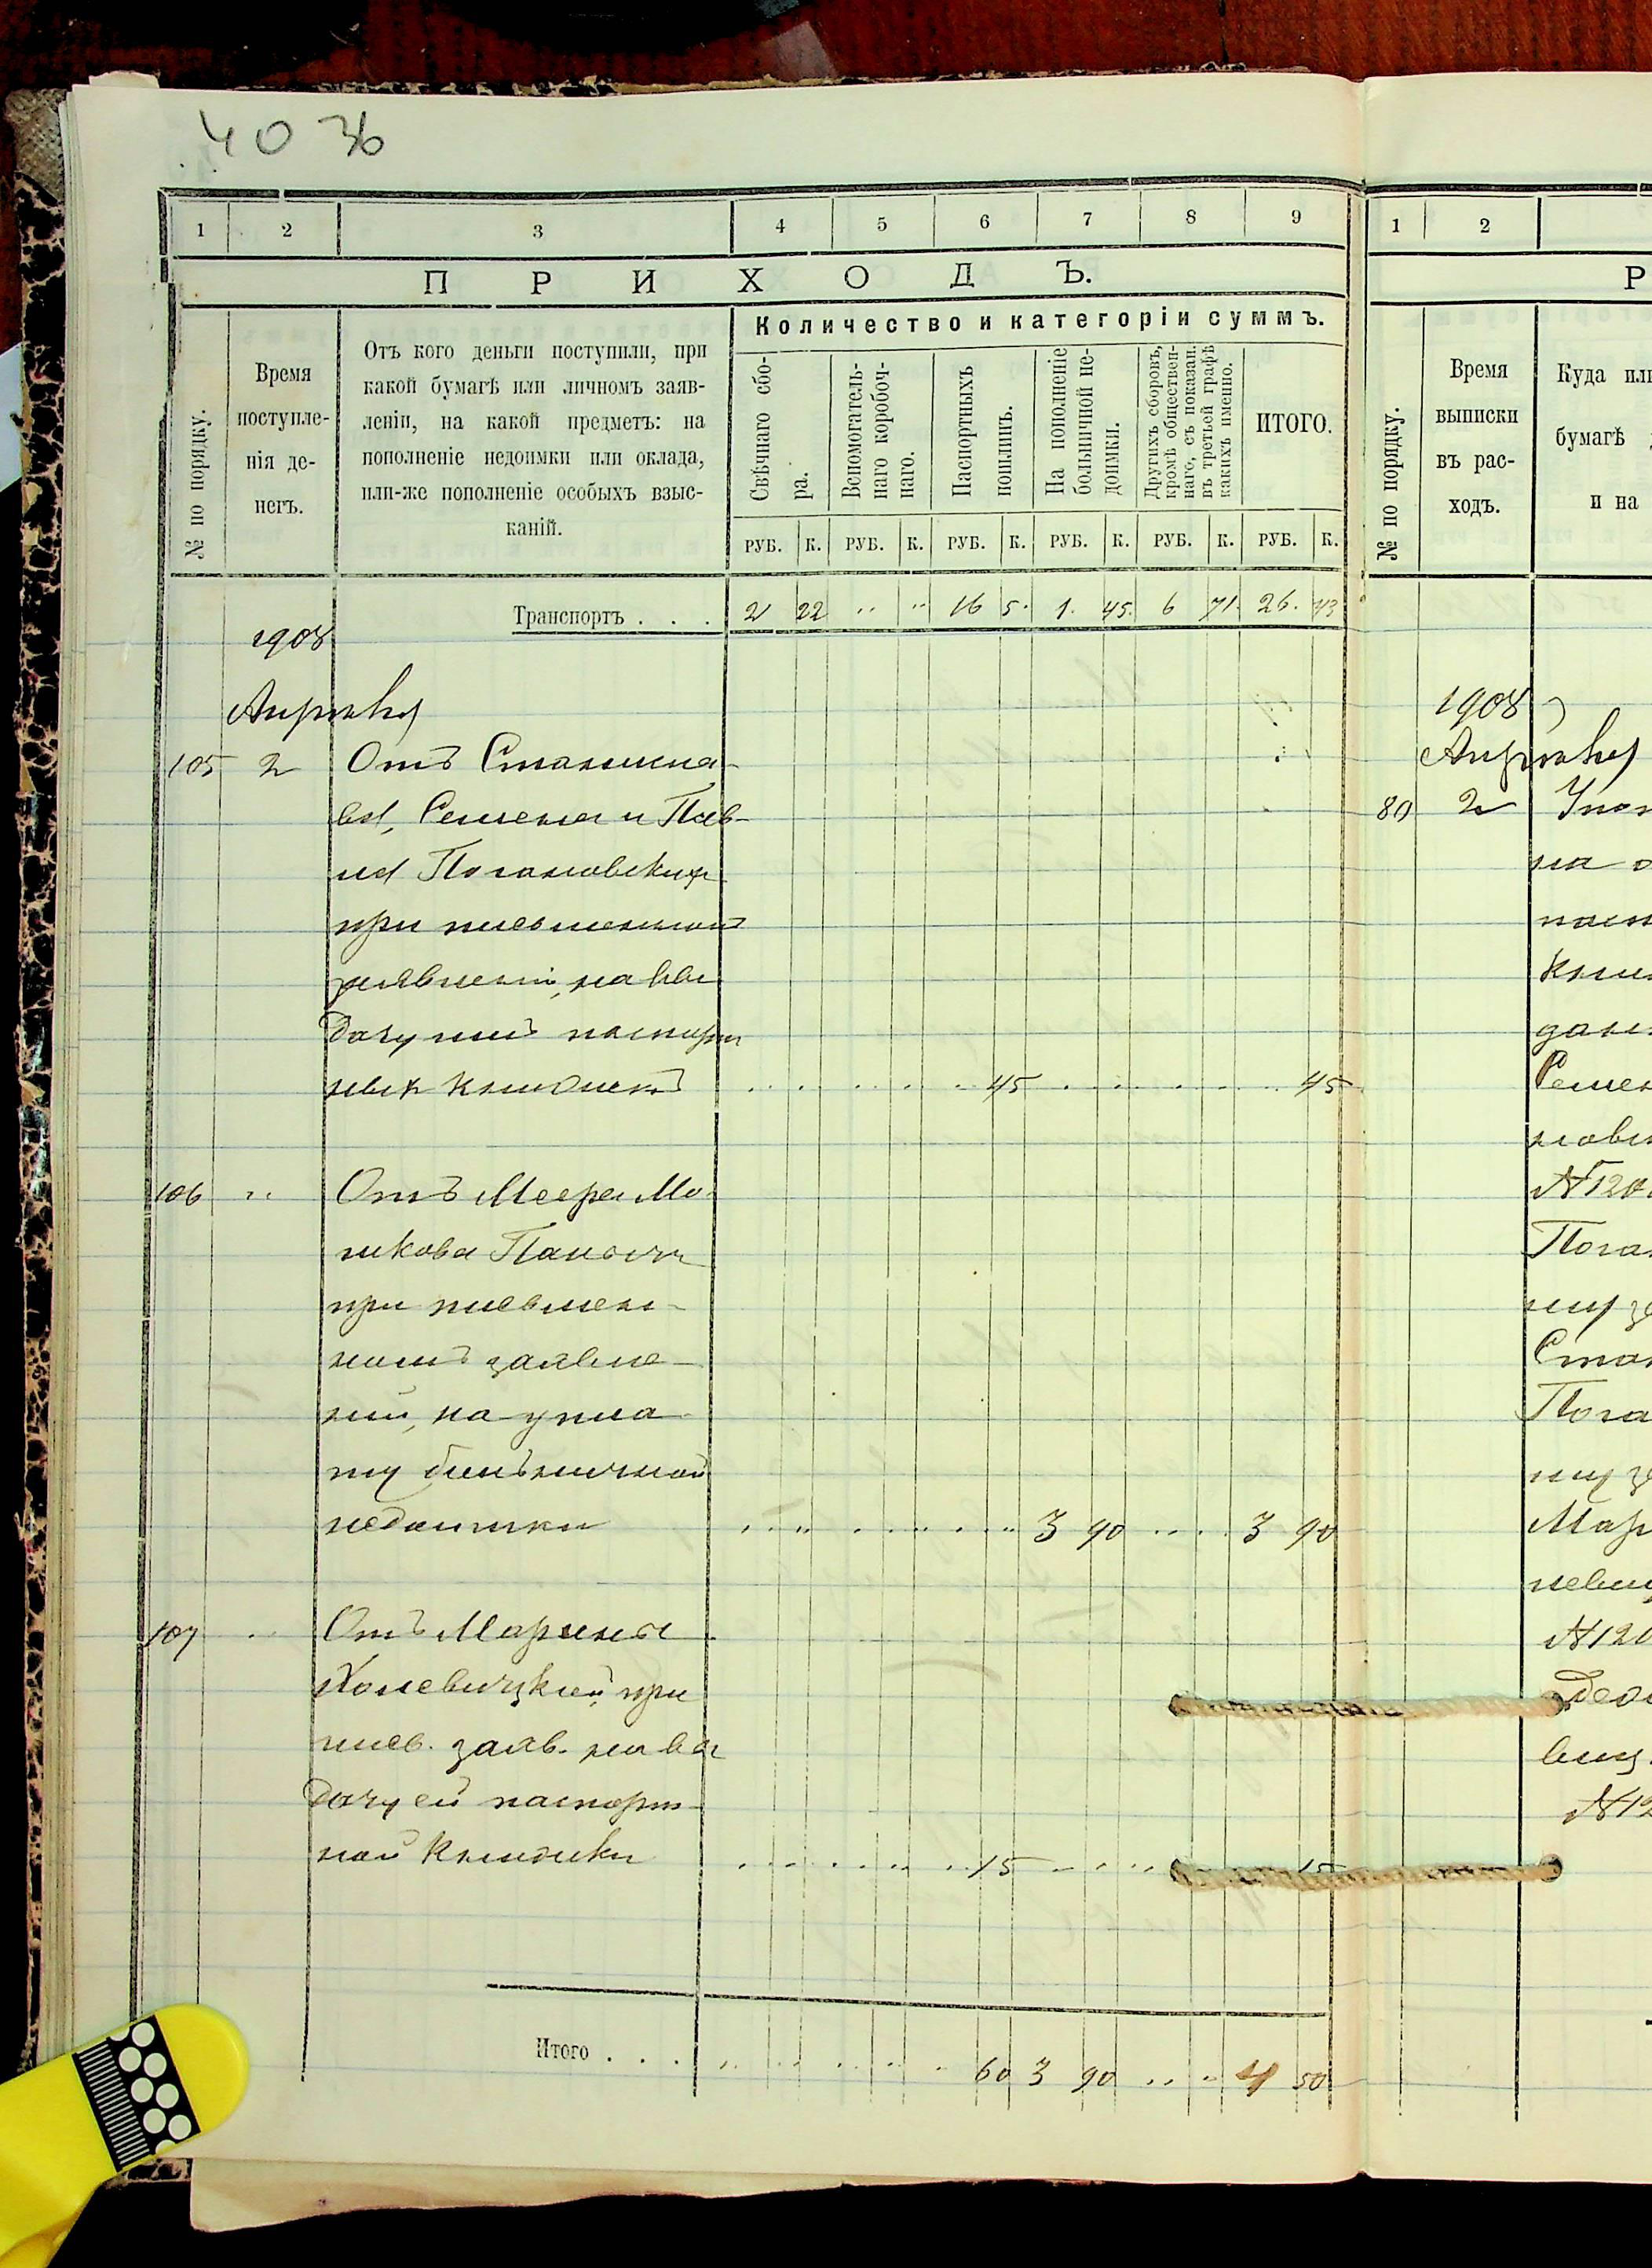 40 36
1 2 3 4 5 6 7 8 9
ПРИХОДЪ.
№ по порядку.
Время
поступле-
нія де-
негъ.
Отъ кого деньги поступили, при
какой бумагѣ или личномъ заяв-
леніи, на какой предметъ: на
пополненіе недоимки или оклада,
или-же пополненіе особыхъ взыс-
каній.
Количество и категоріи суммъ.
Свѣчнаго сбо-
ра.
Вспомогатель-
наго коробоч-
наго.
Паспортныхъ
пошлинъ.
На пополненіе
больничной не-
доимки.
Другихъ сборовъ,
кромѣ обществен-
наго, съ показан.
въ третьей графѣ
какихъ именно.
ИТОГО.
РУБ. К. РУБ. К. РУБ. К. РУБ. К. РУБ. К. РУБ. К.
Транспортъ . . . 2 22 " " 16 5. 1. 45. 6 71. 26. 43
1908
Апрѣля
105 2 Отъ Станисла-
ва, Семена и Пав-
ла Погановскихъ
при письменномъ
заявленіи, на вы
дачу имъ паспорт
ныхъ книжекъ 45 45
106 " Отъ Меера Мо-
при письмен-
номъ заявле-
ніи, на упла
ту больничной
недоимки 3 90 3 90
107 Отъ Марьяны
при
пис. заяв. на вы
дачу ей паспорт-
ной книжки 15 15
Итого . . . 60 3 90 4 50
1 2
Р
№ по порядку.
Время
выписки
въ рас-
ходъ.
Куда или
бумагѣ
и на
1908
Апрѣля
80 2
на
Семен
№ 120
Пога
Стан
Пога
Мар
№ 120
№ 12